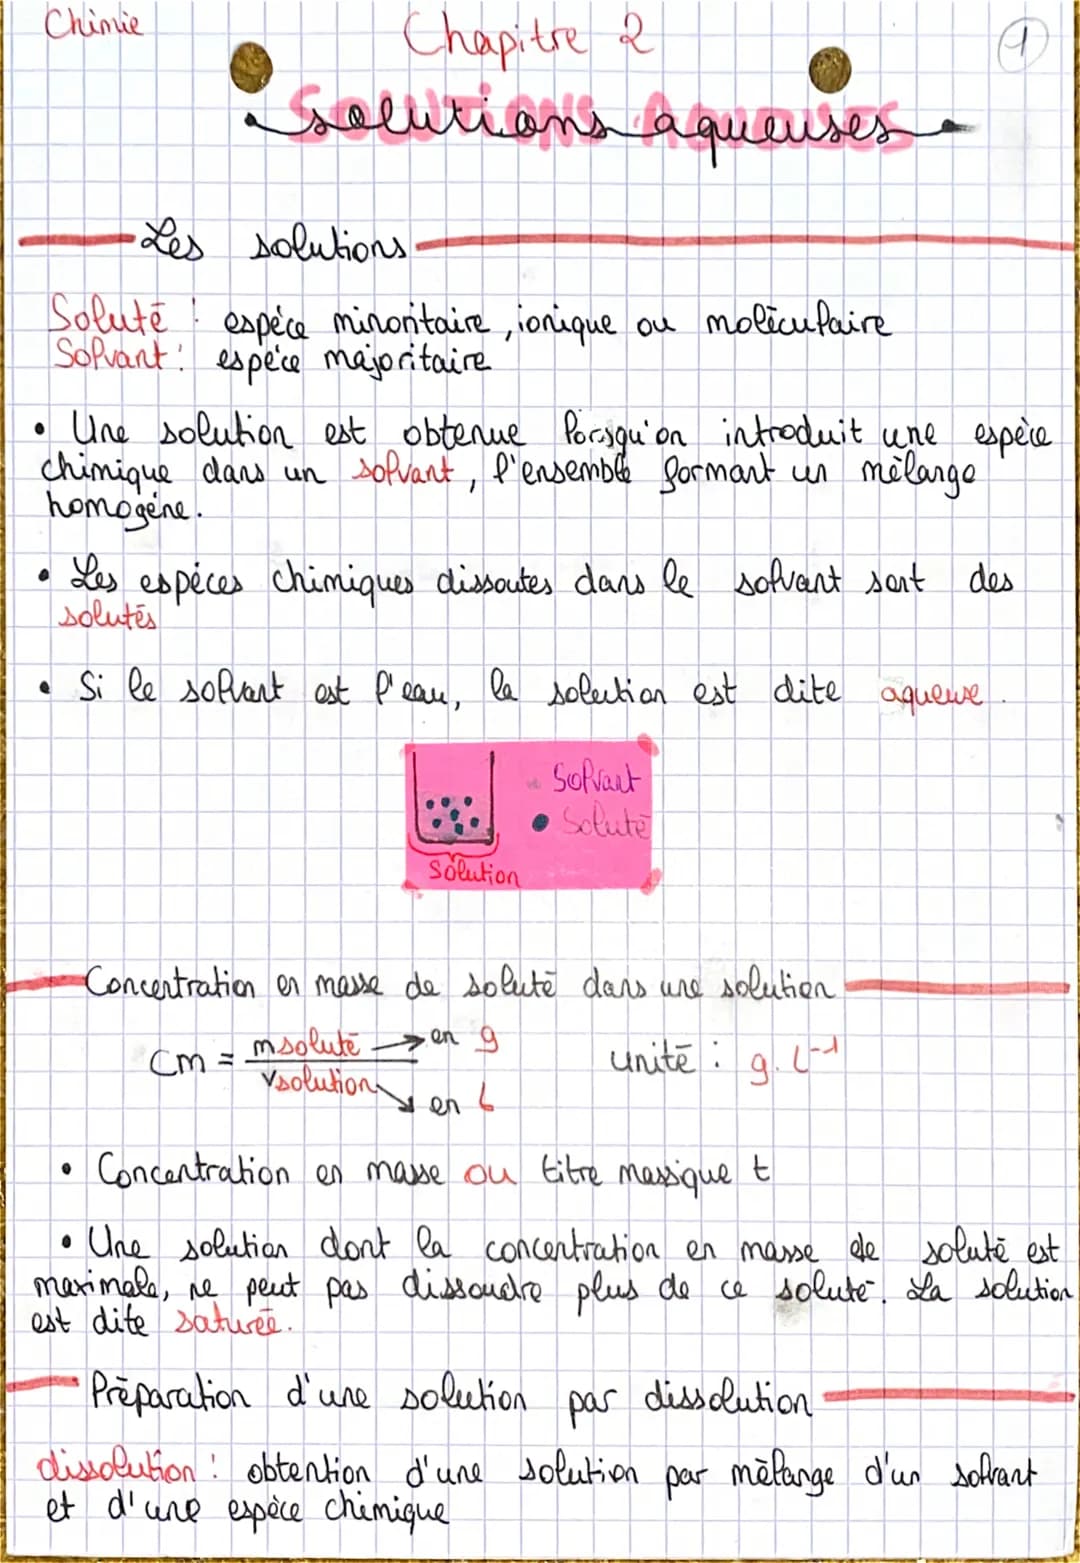 Chimie
Chapitre 2
1
SOLUTIONS AQUEUSES
solutions aqueuses
Les solutions
Soluté : espèce minoritaire, ionique ou moléculaire
Solvant : espèce majoritaire
• Une solution est obtenue lorsqu'on introduit une espèce
chimique dans un solvant, l'ensemble formant un mélange
homogène.
• Les espèces chimiques dissoutes dans le solvant sont des
solutés
• Si le solvant est l'eau, la solution est dite aqueuse.
Solvant
• Soluté
Solution
Concentration en masse de soluté dans une solution
Cm = msoluté → en g
Vsolution ↘ en L
unité : g.L⁻¹
• Concentration en masse ou titre massique t
• Une solution dont la concentration en masse de soluté est
maximale, ne peut pas dissoudre plus de ce soluté. La solution
est dite saturée.
Préparation d'une solution par dissolution
dissolution : obtention d'une solution par mélange d'un solvant
et d'une espèce chimique